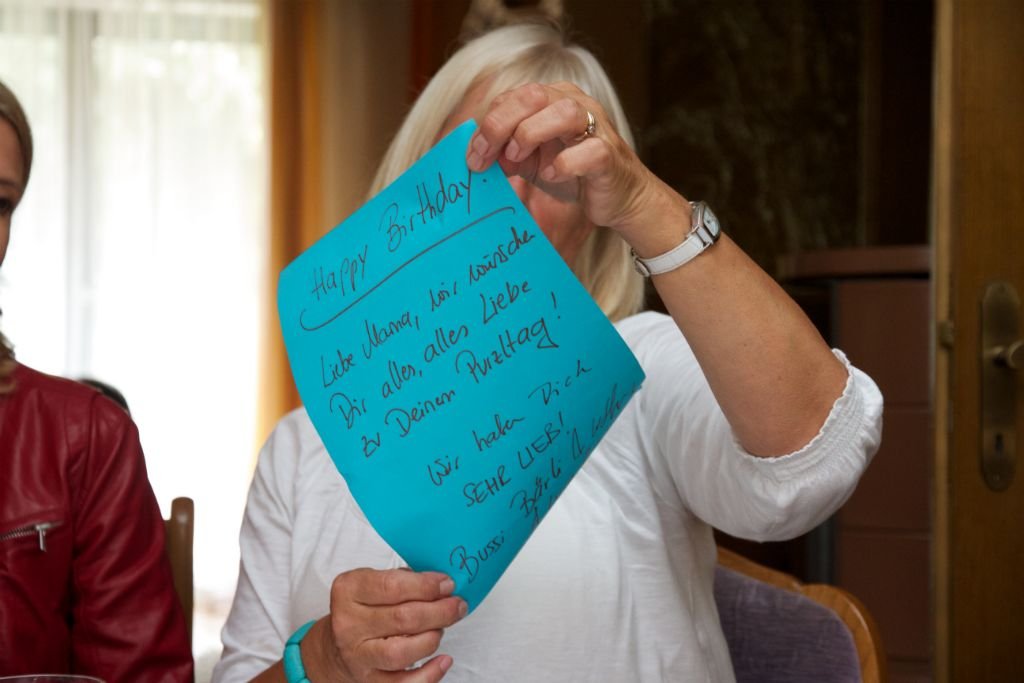 Happy Birthday!
Liebe Mama, wir wünschen
Dir alles, alles Liebe
zu Deinem Purzltag!
Wir haben Dich
SEHR LIEB!
Bussi Bärli